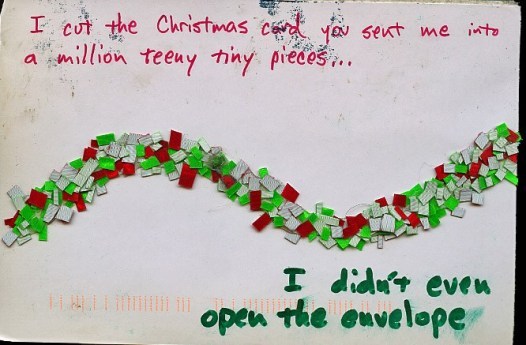 I cut the Christmas card you sent me into
a million teeny tiny pieces...
I didn't even
open the envelope